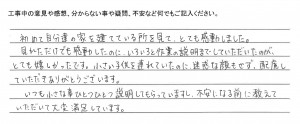 工事中の意見や感想、分からない事や疑問、不安など何でもご記入ください。
初めて自分達の家を建てている所を見て、とても感動しました。
見れただけでも感動したのに、いろいろと作業の説明までしていただいたのが、
とても嬉しかったです。小さい子供を連れていたのに迷惑な顔もせず、配慮し
ていただきありがとうございます。
いつも小さな事ひとつひとつ説明してもらっていますし、不安になる前に教えて
いただいて大変満足しています。